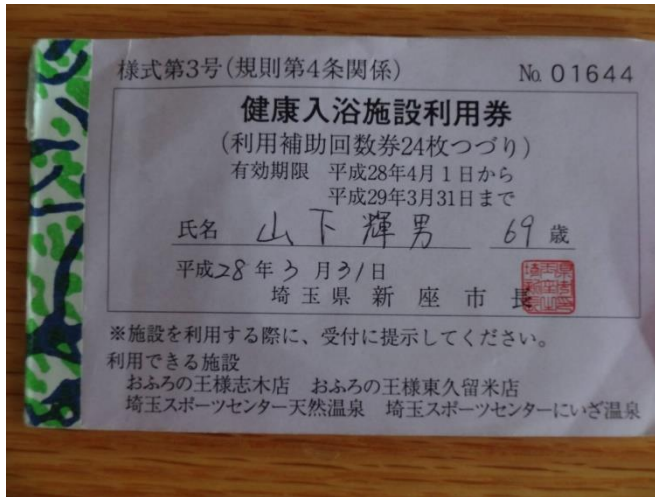 様式第3号(規則第4条関係) No. 01644
健康入浴施設利用券
(利用補助回数券24枚つづり)
有効期限 平成28年4月1日から
平成29年3月31日まで
氏名 山下輝男 69歳
平成28年3月31日
埼玉県新座市長
※施設を利用する際に、受付に提示してください。
利用できる施設
おふろの王様志木店 おふろの王様東久留米店
埼玉スポーツセンター天然温泉 埼玉スポーツセンターにいざ温泉